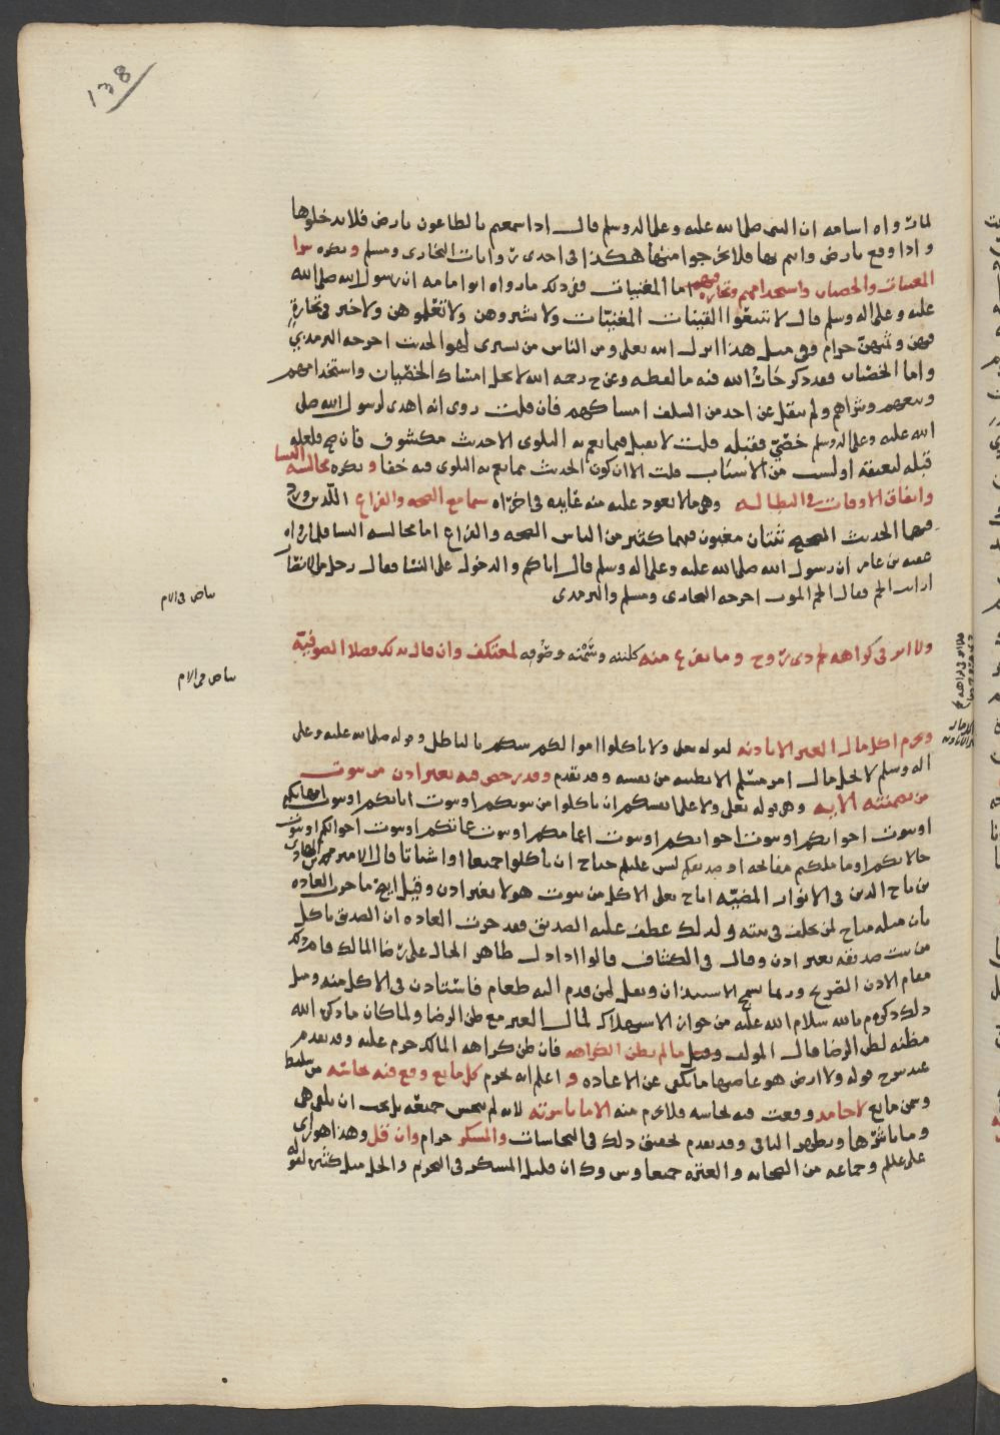 138
لما رواه اسامه ان النبى صلى الله عليه وعلى اله وسلم قال اذا سمعتم بالطاعون بارض فلا تدخلوها
و اذا وقع بارض وانتم بها فلا تخرجوا منها هكذا فى احدى روايات البخارى ومسلم ويكره شرا
المغنيات والخصيان واستخدامهم وتجارة فيهم اما المغنيات ففى ذلك ما رواه ابوا مامه ان رسول الله صلى الله
عليه وعلى اله وسلم قال لا تبيعوا القينات المغنيات ولا تشتروهن ولا تعلموهن ولا خير فى تجارة
فيهن وثمنهن حرام وفى مثل هذا انزل الله تعلى ومن الناس من يشترى لهو الحديث اخرجه الترمذي
واما الخصيان فقد ذكر الله فيه ما لفظه وعن ح رحمه الله لا يحل امساك الخصيان واستخدامهم
وبيعهم وشراهم ولم ينقل عن احد من السلف امساكهم فان قلت روى انه اهدى لرسول الله صلى
الله عليه وعلى اله وسلم خصى فقبله قلت لا يقبل فيما يعم به البلوى الا حديث مكشوف فان صح فلعله
قبله ليعتقه او لسبب من الاسباب قلت الا ان كون الحديث مما يعم به البلوى فيه خفا ويكره مجالسة النسا
وانفاق الاوقات فى البطالـه وهى مالا يعود عليه منه فايده فى اخراه سيما مع الصحه والفراغ اللذين ورد
فيهما الحديث الصحيح نعمتان مغبون فيهما كثير من الناس الصحه والفراغ اما مجالسه النسا فلما رواه
عقبه بن عامر ان رسول الله صلى الله عليه وعلى اله وسلم قال اياكم والدخول على النسا فقال رجل من الانصار
ارايت الحم فقال الحم الموت اخرجه البخارى ومسلم والترمذى
بياض فى الام
ولا اثر فى كراهه لحم ذى روح وما تفرع منه كلبنه وسمنه وصوفه لمعتكف وان قال بذلك فضلا الصوفية
بياض فى الام
ويحرم اكل مال الغير الا باذنه لقوله تعلى ولا تاكلوا اموالكم بينكم بالباطل وقوله صلى الله عليه وعلى
اله وسلم لا يحل مال امرء مسلم الا بطيبه من نفسه وقد تقدم وقد رخص فيه بغير اذن من بيوت
من تضمنته الايه وهى قوله تعلى ولا على انفسكم ان تاكلوا من بيوتكم او بيوت ابائكم او بيوت امهاتكم
او بيوت اخوانكم او بيوت اخواتكم او بيوت اعمامكم او بيوت عماتكم او بيوت اخوالكم او بيوت
خالاتكم او ما ملكتم مفاتحه او صديقكم ليس عليكم جناح ان تاكلوا جميعا او اشتاتا قال الامير محمد بن الهادى
بن تاج الدين فى الانوار المضيه اباح تعلى الاكل من بيوت هولا بغير اذن وقيل انه ما جرت العاده
بان مثله مباح لمن يخلف فى بيته ولذلك عطف عليه الصديق فقد جرت العاده ان الصديق ياكل
من بيت صديقه بغير اذن وقال فى الكشاف قالوا اذا دل ظاهر الحال على رضا المالك قام ذلك
مقام الاذن الصريح وربما سمج الاستيذان وثقل كمن قدم اليه طعام فاستاذن فى الاكل منه ومثل
ذلك ذكره م بالله سلام الله عليه من جواز الاستهلاك لمال الغير مع ظن الرضا ولما كان ما ذكره الله
مظنه لظن الرضا قال المولف وقيل ما لم يظن الكراهه فان ظن كراهه المالك حرم عليه وقد تقدم
عند شرح قوله ولا ارض هو غاصبها ما يكفى عن الاعاده و اعلم انه يحرم كل مايع وقع فيه نجاسه من سليط
وسمن مايع لا جامد وقعت فيه نجاسه فلا يحرم منه الا ما باشرته لانه لم ينجس جميعه بل يجب ان يلقى هى
وما باشرها ويطهر الباقى وقد تقدم تحقيق ذلك فى النجاسات والمسكر حرام وان قل وهذا هو راى
على علم وجماعه من الصحابه والعتره جميعا وش وك ان قليل المسكر فى التحريم والحل مثل كثيره لقوله